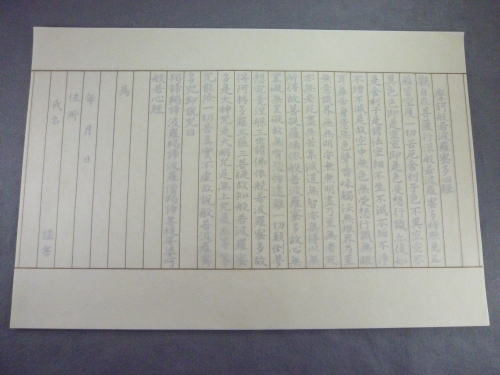 摩訶般若波羅蜜多心経
観自在菩薩行深般若波羅蜜多時照見五
蘊皆空度一切苦厄舎利子色不異空空不
異色色即是空空即是色受想行識亦復如
是舎利子是諸法空相不生不滅不垢不浄
不増不減是故空中無色無受想行識無眼
耳鼻舌身意無色声香味触法無眼界乃至
無意識界無無明亦無無明尽乃至無老死
亦無老死尽無苦集滅道無智亦無得以無
所得故菩提薩埵依般若波羅蜜多故心無
罣礙無罣礙故無有恐怖遠離一切顛倒夢
想究竟涅槃三世諸仏依般若波羅蜜多故
得阿耨多羅三藐三菩提故知般若波羅蜜
多是大神呪是大明呪是無上呪是無等等
呪能除一切苦真実不虚故説般若波羅蜜
多呪即説呪曰
羯諦羯諦波羅羯諦波羅僧羯諦菩提薩婆訶
般若心経
為
年 月 日
住所
氏名 謹写